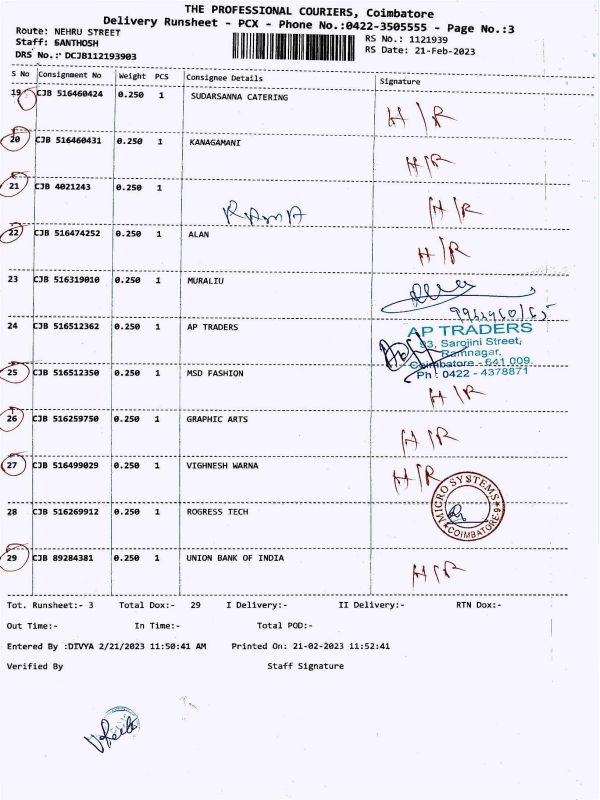 THE PROFESSIONAL COURIERS, Coimbatore
Delivery Runsheet - PCX - Phone No.:0422-3505555 - Page No.:3
Route: NEHRU STREET
RS No.: 1121939
Staff: SANTHOSH
RS Date: 21-Feb-2023
DRS No.: DCJB112193903
S No Consignment No Weight PCS Consignee Details Signature
19 CJB 516460424 0.250 1 SUDARSANNA CATERING H/R
20 CJB 516460431 0.250 1 KANAGAMANI H/R
21 CJB 4021243 0.250 1 RAMA H/R
22 CJB 516474252 0.250 1 ALAN H/R
23 CJB 516319010 0.250 1 MURALIU
24 CJB 516512362 0.250 1 AP TRADERS
AP TRADERS
93, Sarojini Street,
Ramnagar,
Coimbatore - 641 009.
Ph : 0422 - 4378871
25 CJB 516512350 0.250 1 MSD FASHION H/R
26 CJB 516259750 0.250 1 GRAPHIC ARTS H/R
27 CJB 516499029 0.250 1 VIGHNESH WARNA H/R
28 CJB 516269912 0.250 1 ROGRESS TECH
MICRO SYSTEMS
COIMBATORE-9
29 CJB 89284381 0.250 1 UNION BANK OF INDIA H/R
Tot. Runsheet:- 3 Total Dox:- 29 I Delivery:- II Delivery:- RTN Dox:-
Out Time:- In Time:- Total POD:-
Entered By :DIVYA 2/21/2023 11:50:41 AM Printed On: 21-02-2023 11:52:41
Verified By Staff Signature